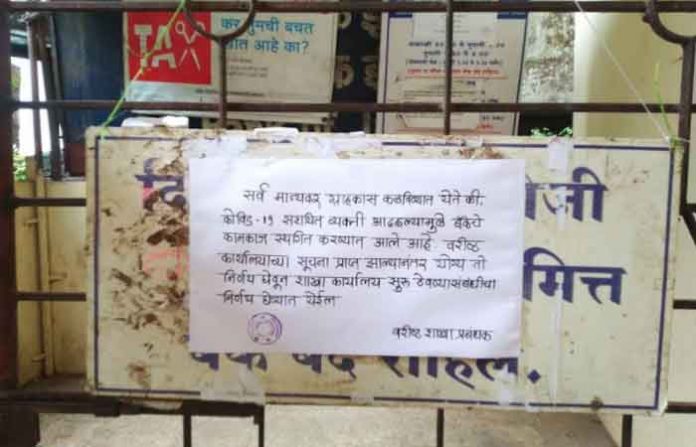 TAX
कर तुमची बचत
खात आहे का?
दि
जी
मित्त
बँक बंद राहिल.
सर्व मान्यवर ग्राहकास कळविण्यात येते की,
कोविड-१९ संशयित व्यक्ती आढळल्यामुळे बँकेचे
कामकाज स्थगित करण्यात आले आहे. वरीष्ठ
कार्यालयाच्या सूचना प्राप्त झाल्यानंतर योग्य तो
निर्णय घेवून शाखा कार्यालय सुरू ठेवण्यासंबंधीचा
निर्णय घेण्यात येईल
वरीष्ठ शाखा प्रबंधक